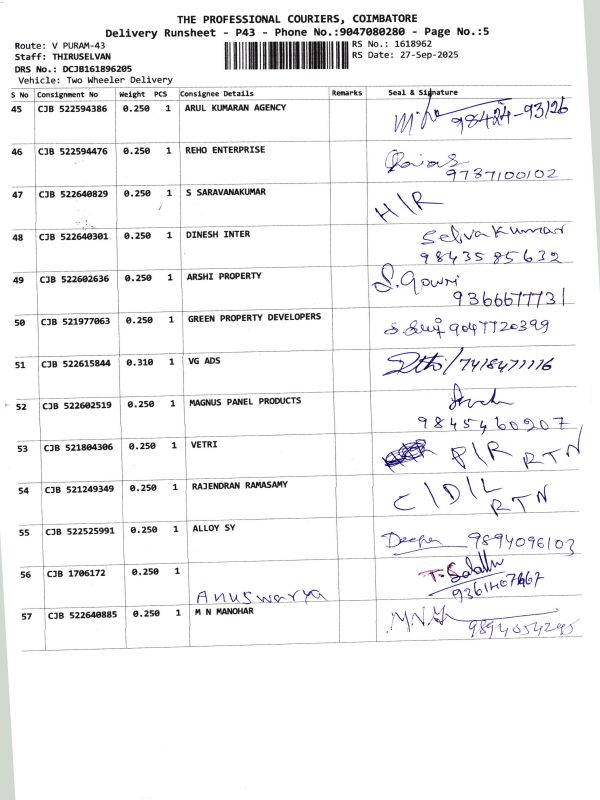 THE PROFESSIONAL COURIERS, COIMBATORE
Delivery Runsheet - P43 - Phone No.:9047080280 - Page No.:5
Route: V PURAM-43
RS No.: 1618962
Staff: THIRUSELVAN
RS Date: 27-Sep-2025
DRS No.: DCJB161896205
Vehicle: Two Wheeler Delivery
S No Consignment No Weight PCS Consignee Details Remarks Seal & Signature
45 CJB 522594386 0.250 1 ARUL KUMARAN AGENCY 98424-93126
46 CJB 522594476 0.250 1 REHO ENTERPRISE
9787100102
47 CJB 522640829 0.250 1 S SARAVANAKUMAR H/R
48 CJB 522640301 0.250 1 DINESH INTER Selvakumar
9843585632
49 CJB 522602636 0.250 1 ARSHI PROPERTY S. Gowri
9366677731
50 CJB 521977063 0.250 1 GREEN PROPERTY DEVELOPERS 9047720399
51 CJB 522615844 0.310 1 VG ADS /7418471116
52 CJB 522602519 0.250 1 MAGNUS PANEL PRODUCTS
9845460207
53 CJB 521804306 0.250 1 VETRI P/R RTN
54 CJB 521249349 0.250 1 RAJENDRAN RAMASAMY C/D/L
RTN
55 CJB 522525991 0.250 1 ALLOY SY Deepa 9894096103
56 CJB 1706172 0.250 1 Anuswarya
57 CJB 522640885 0.250 1 M N MANOHAR M.N.
9894054295